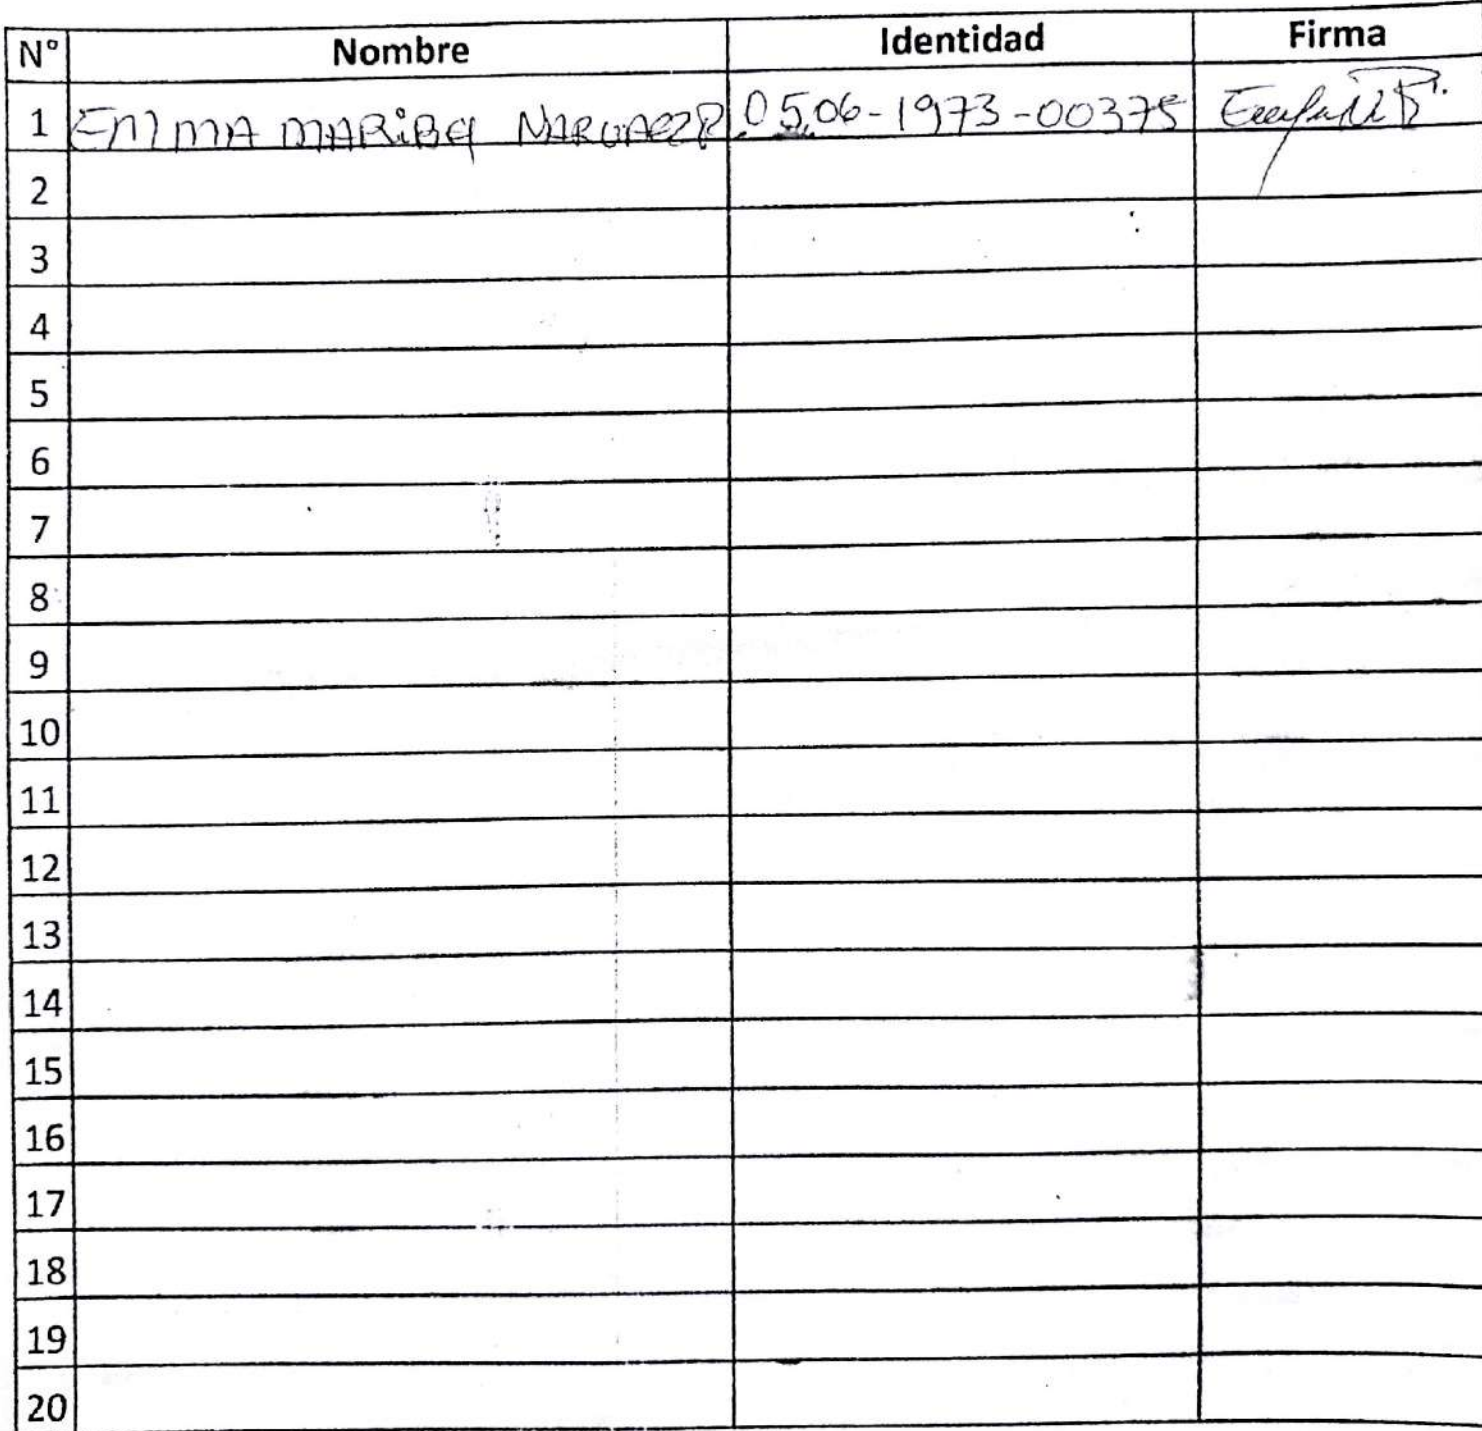 N° Nombre Identidad Firma
1 EMMA MARIBEL NARVAEZ R 0506-1973-00375
2
3
4
5
6
7
8
9
10
11
12
13
14
15
16
17
18
19
20